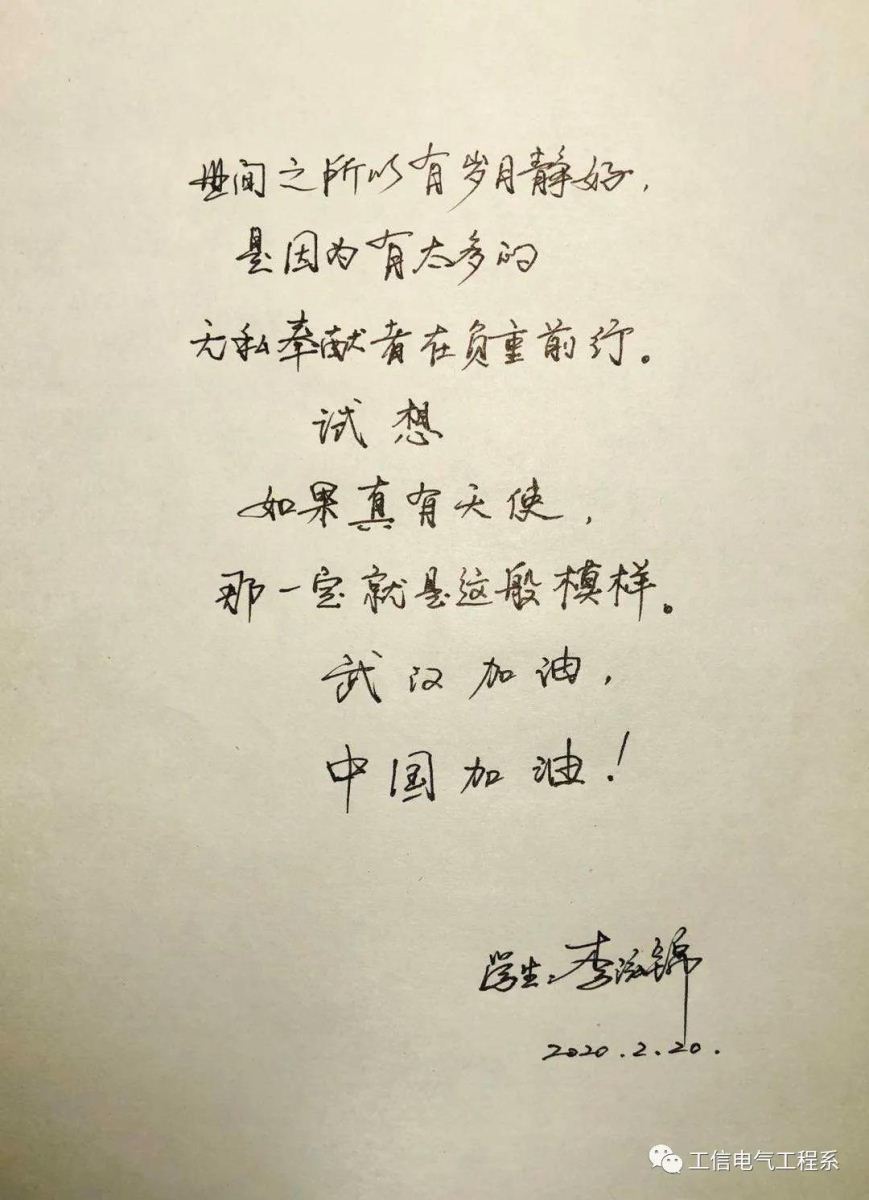 世间之所以有岁月静好，
是因为有太多的
无私奉献者在负重前行。
试想
如果真有天使，
那一定就是这般模样。
武汉加油，
中国加油！
学生：李 锦
2020.2.20.
工信电气工程系